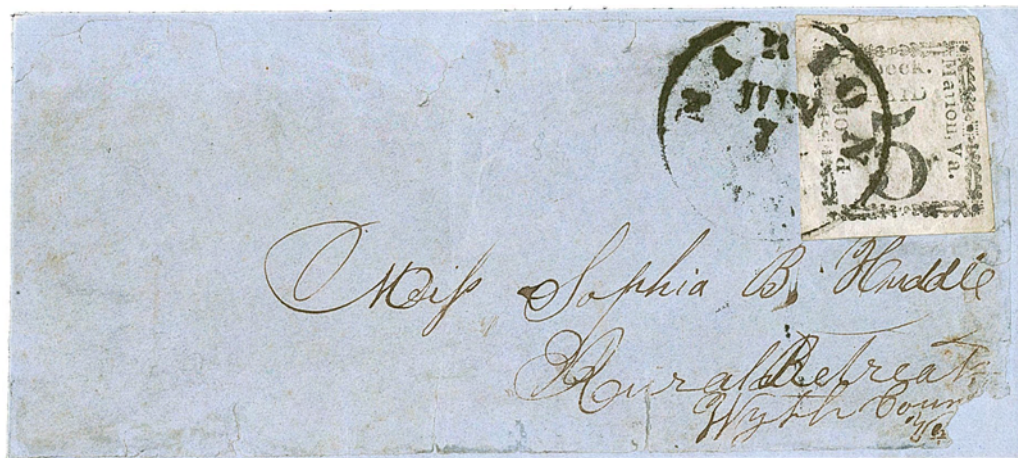 MARION
JUN
Marion, Va.
5
Miss Sophia B. Huddle
Rural Retreat
Wyth Coun
Va